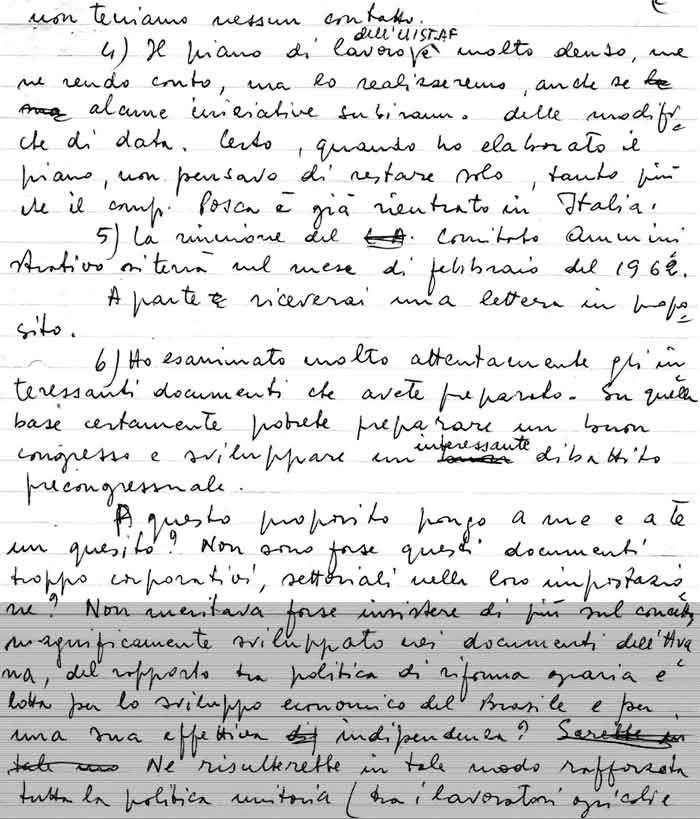 non teniamo nessun contatto.
4) Il piano di lavoro dell'UISTAF è molto denso, me
ne rendo conto, ma lo realizzeremo, anche se
alcune iniziative subiranno delle modifi-
che di data. Certo, quando ho elaborato il
piano, non pensavo di restare solo, tanto più
che il comp. Posca è già rientrato in Italia.
5) La riunione del Comitato Ammini
strativo si terrà nel mese di febbraio del 1962.
A parte riceverai una lettera in propo-
sito.
6) Ho esaminato molto attentamente gli in
teressanti documenti che avete preparato. Su quella
base certamente potrete preparare un buon
congresso e sviluppare un interessante dibattito
precongressuale.
A questo proposito pongo a me e a te
un quesito? Non sono forse questi documenti
troppo corporativi, settoriali nella loro impostazio
ne? Non meritava forse insistere di più sul concetto,
magnificamente sviluppato nei documenti dell'Ava
na, del rapporto tra politica di riforma agraria e
lotta per lo sviluppo economico del Brasile e per
una sua effettiva indipendenza? Sarebbe in
tale Ne risulterebbe in tale modo rafforzata
tutta la politica unitaria (tra i lavoratori agricoli e